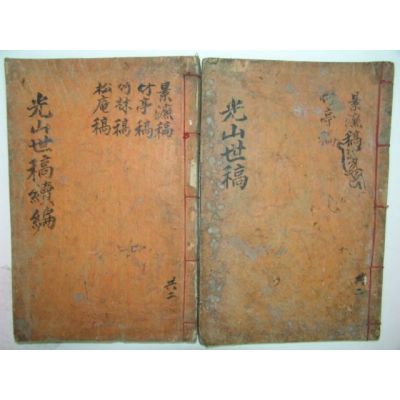 景濂稿
竹亭稿
竹林稿
松庵稿
光山世稿續編
共二
景濂稿
竹亭稿
光山世稿
共二